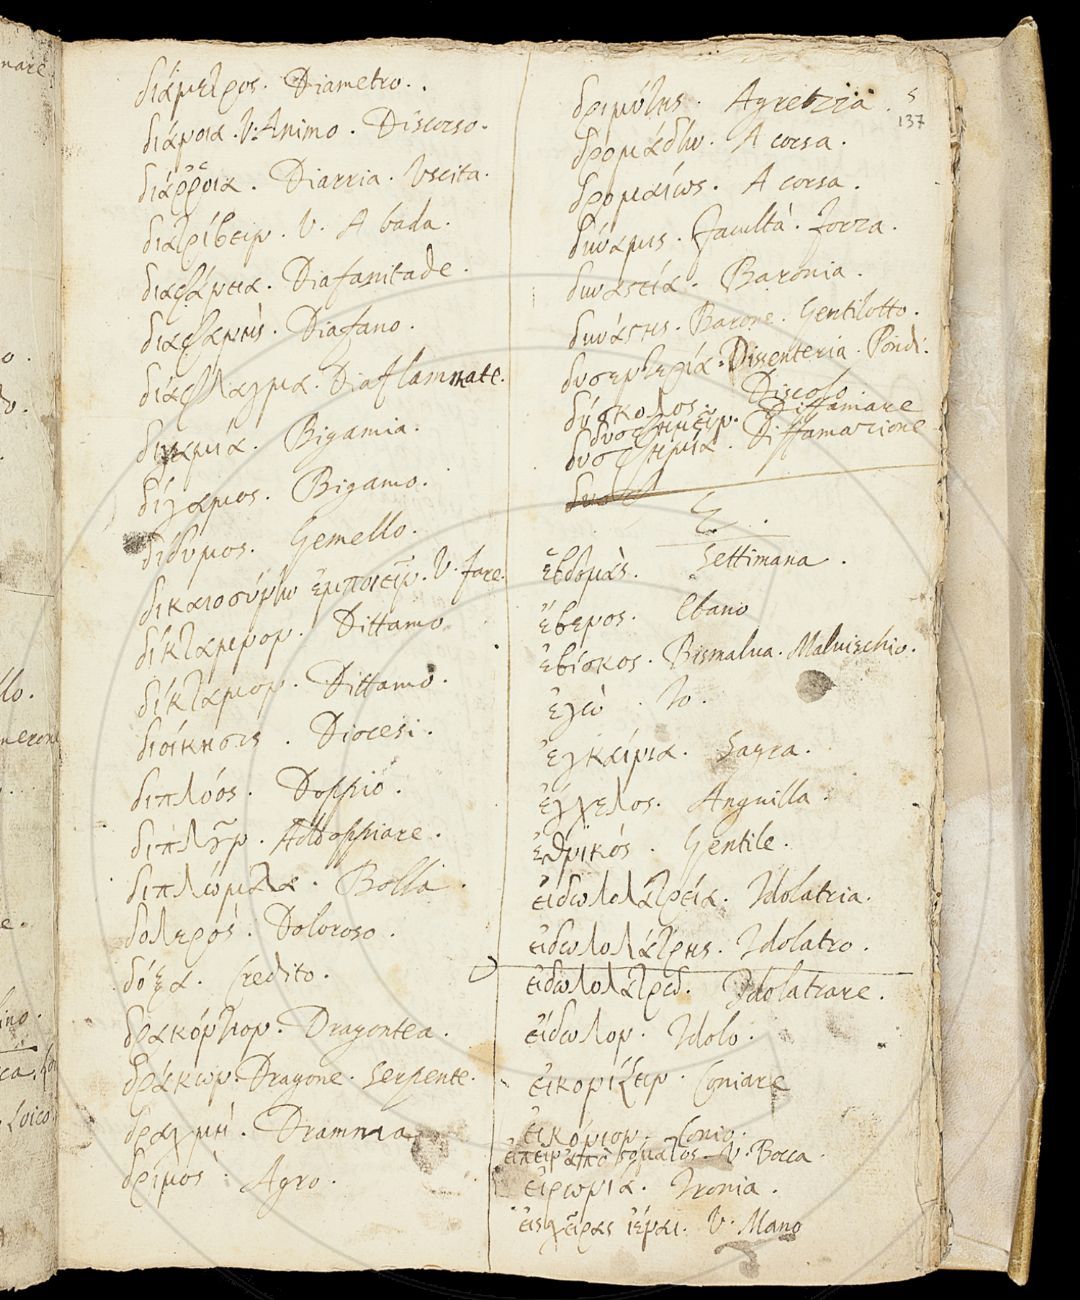 διάμετρος. Diametro.
διάνοια. V. Animo. Discorso.
διάῤῥοια. Diarria. Vscita.
διατρίβειν. V. A bada.
διαφάνεια. Diafanitade.
διαφανὴς. Diafano.
διάφλαγμα. Diaflammate.
διγαμία. Bigamia.
δίγαμος. Bigamo.
δίδυμος. Gemello.
δικαιοσύνην ἐμποιεῖν. V. fare.
δίκταμενον. Dittamo
δίκταμον. Dittamo.
διοίκησις. Diocesi.
διπλόος. Doppio.
διπλῆν. Addoppiare.
διπλώματα. Bolla.
δολερὸς. Doloroso.
δόξα. Credito.
δρακόντιον. Dragontea.
δράκων. Dragone. Serpente.
δραγμή. Dramma
δριμὸς. Agro.
δριμύτης. Agrezza.
5
137
δρομάδην. A corsa.
δρομαίως. A corsa.
δύναμις. facultà. forza.
δυναστεία. Baronia.
δυνάστης. Barone. Gentilotto.
δυσεντερία. Disenteria. Pondi.
δύσκολος. Discolo.
δυσφημεῖν. Diffamare
δυσφημία. Diffamazione
δυσ
E.
ἑβδομὰς. Settimana.
ἔβενος. Ebano
ἐβίσκος. Bismalua. Maluischio.
ἐγὼ. Io.
ἐγκαίνια. Sagra.
ἔγχελος. Anguilla.
ἐθνικός. Gentile.
εἰδωλολατρεία. Idolatria.
εἰδωλολάτρης. Idolatro.
εἰδωλολατρεῖ. Idolatrare.
εἴδωλον. Idolo.
εἰκονίζειν. Coniare
εἰκόνιον. Conio.
εἰπεῖν ἀπὸ στόματος. V. Bocca.
εἰρωνία. Ironia.
εἰς χεῖρας ἰέναι. V. Mano